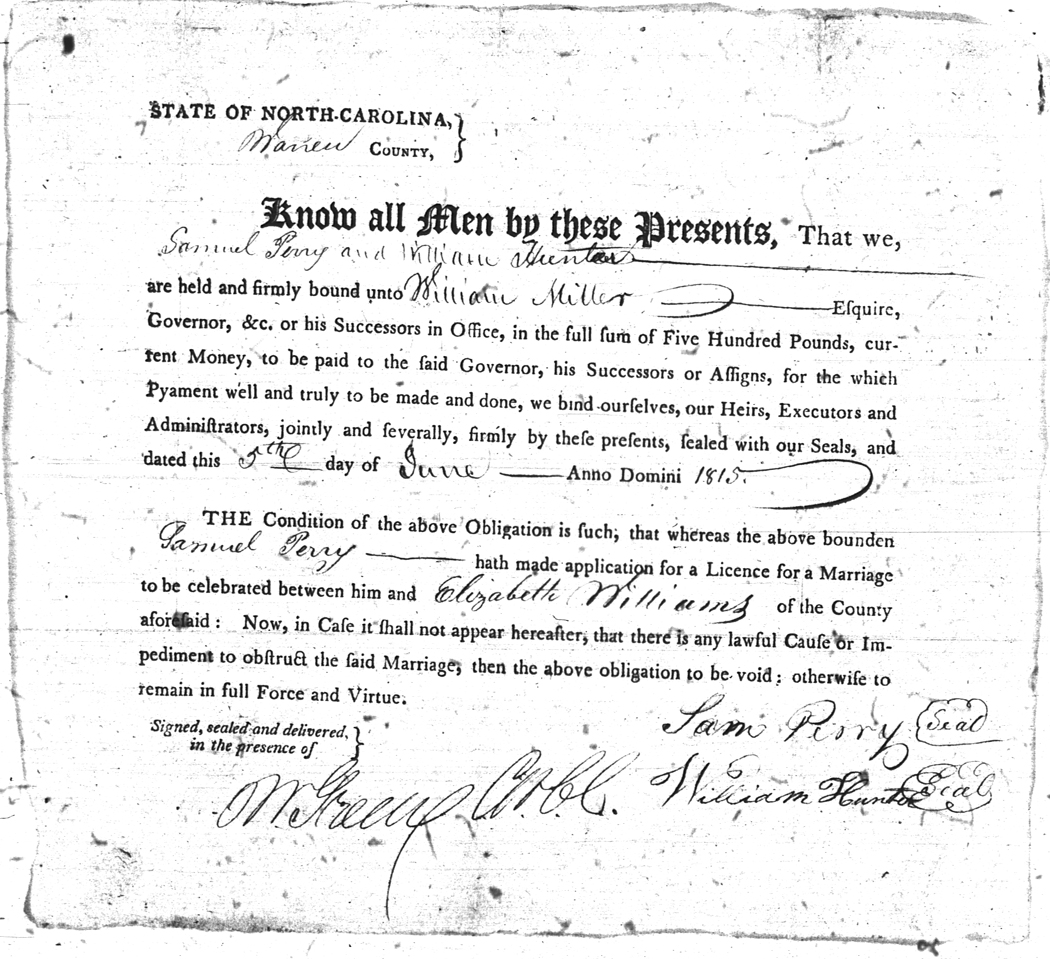 STATE OF NORTH-CAROLINA,
Warren COUNTY,
Know all Men by these Presents, That we,
Samuel Perry and William Hunter
are held and firmly bound unto William Miller Eſquire,
Governor, &c. or his Successors in Office, in the full ſum of Five Hundred Pounds, cur-
rent Money, to be paid to the ſaid Governor, his Successors or Aſſigns, for the which
Pyament well and truly to be made and done, we bind ourselves, our Heirs, Executors and
Adminiſtrators, jointly and ſeverally, firmly by theſe preſents, ſealed with our Seals, and
dated this 5th day of June Anno Domini 1815.
THE Condition of the above Obligation is ſuch, that whereas the above bounden
Samuel Perry hath made application for a Licence for a Marriage
to be celebrated between him and Elizabeth Williams of the County
aforeſaid: Now, in Caſe it ſhall not appear hereafter, that there is any lawful Cauſe or Im-
pediment to obſtruct the ſaid Marriage, then the above obligation to be void: otherwiſe to
remain in full Force and Virtue.
Signed, sealed and delivered,
in the presence of
Sam Perry Seal
William Hunter Seal